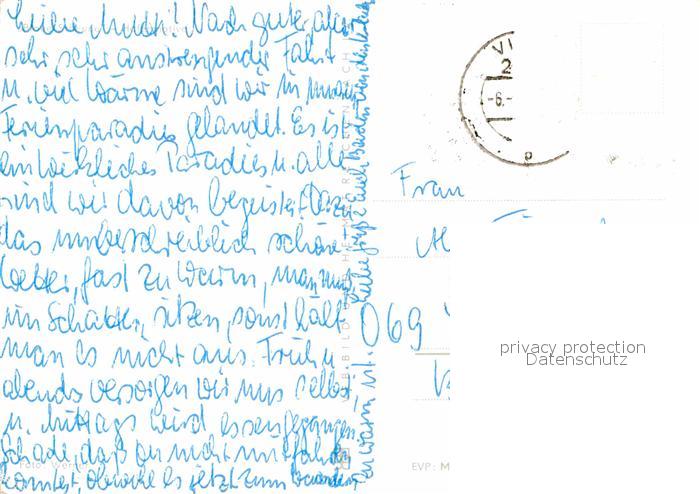 Liebe Mutti! Nach guter, aber
sehr, sehr anstrengender Fahrt
u. viel Wärme sind wir in unser
Ferienparadies gelandet. Es ist
ein wirkliches Paradies u. alle
sind wir davon begeistert. Dazu
das unbeschreiblich schöne
Wetter, fast zu warm, man muß
im Schatten sitzen, sonst hält
man es nicht aus. Früh u.
abends versorgen wir uns selbst
u. mittags wird essengegangen.
Schade, daß du nicht mitfahren
konntest, obwohl es jetzt zum
zu warm ist.
Liebe Grüße Euch beiden
VI
2
-6.-
Frau
069
privacy protection
Datenschutz
Foto: Werner
EVP: M